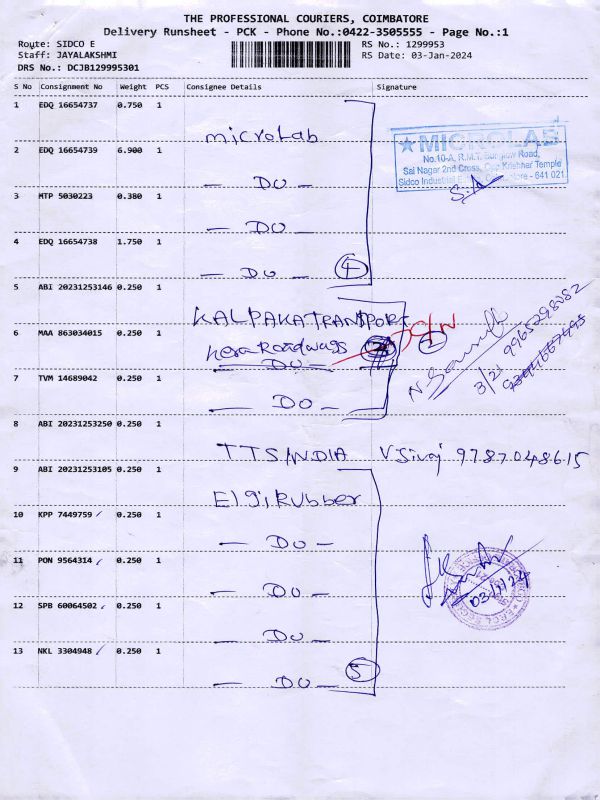 THE PROFESSIONAL COURIERS, COIMBATORE
Delivery Runsheet - PCK - Phone No.:0422-3505555 - Page No.:1
Route: SIDCO E
RS No.: 1299953
Staff: JAYALAKSHMI
RS Date: 03-Jan-2024
DRS No.: DCJB129995301
S No Consignment No Weight PCS Consignee Details Signature
1 EDQ 16654737 0.750 1
microLab
MICROLAB
No.10-A, R.M.T. Bunglow Road,
Sai Nagar 2nd Cross, Opp. Krishnar Temple
Sidco Industrial - 641 021
2 EDQ 16654739 6.900 1
- DO -
3 MTP 5030223 0.380 1
- DO -
4 EDQ 16654738 1.750 1
- DO - 4
5 ABI 20231253146 0.250 1
KALPAKA TRANSPORT
6 MAA 863034015 0.250 1
Roadways 2
- DO -
3/21 9965298082
7 TVM 14689042 0.250 1
- DO -
8 ABI 20231253250 0.250 1
TTS INDIA V Sivaj 9787048615
9 ABI 20231253105 0.250 1
Elgi Rubber
10 KPP 7449759 0.250 1
- DO -
11 PON 9564314 0.250 1
- DO -
03/1/24
12 SPB 60064502 0.250 1
- DO -
13 NKL 3304948 0.250 1
- DO - 5